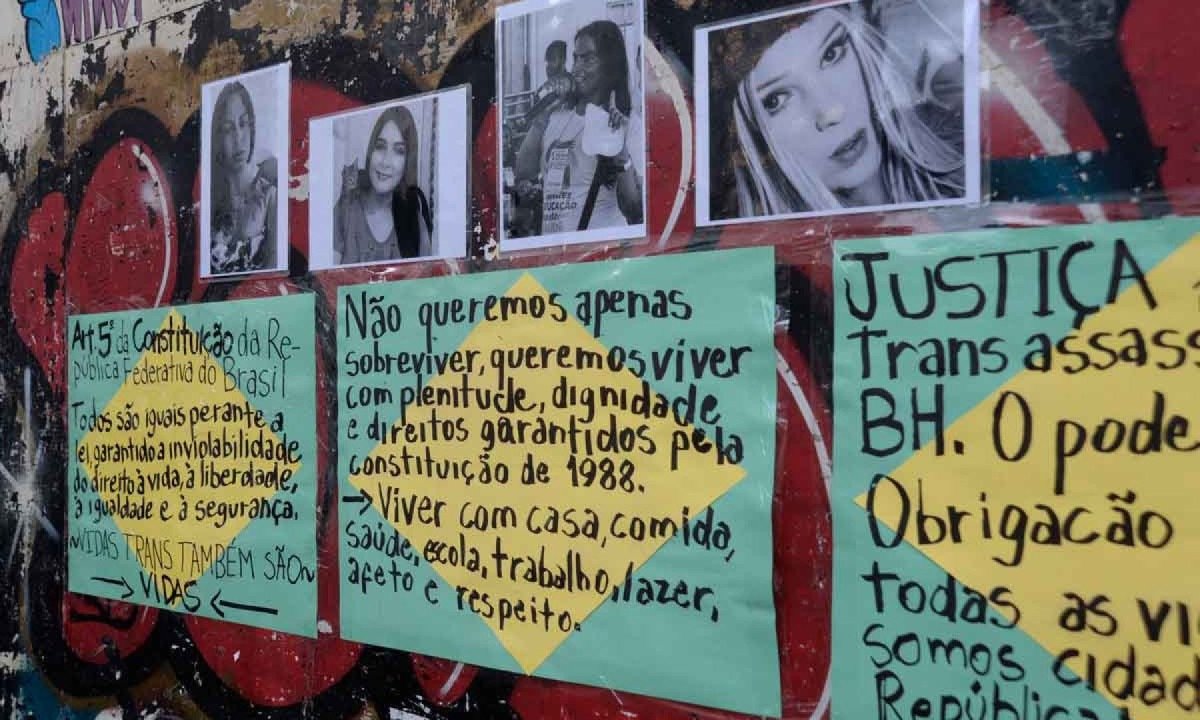 Art. 5º da Constituição da Re-
pública Federativa do Brasil
Todos são iguais perante a
lei, garantido a inviolabilidade
do direito à vida, à liberdade,
à igualdade e à segurança.
~VIDAS TRANS TAMBÉM SÃO~
→ VIDAS ←
Não queremos apenas
sobreviver, queremos viver
com plenitude, dignidade
e direitos garantidos pela
constituição de 1988.
→ Viver com casa, comida,
saúde, escola, trabalho, lazer,
afeto e respeito.
JUSTIÇA
Trans assass
BH. O pode
Obrigacão
todas as vi
somos cidad
Repúblic